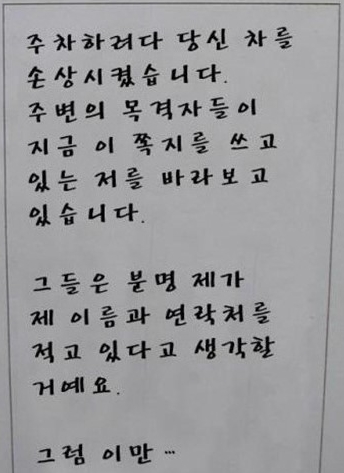 주차하려다 당신 차를
손상시켰습니다.
주변의 목격자들이
지금 이 쪽지를 쓰고
있는 저를 바라보고
있습니다.
그들은 분명 제가
제 이름과 연락처를
적고 있다고 생각할
거예요.
그럼 이만…